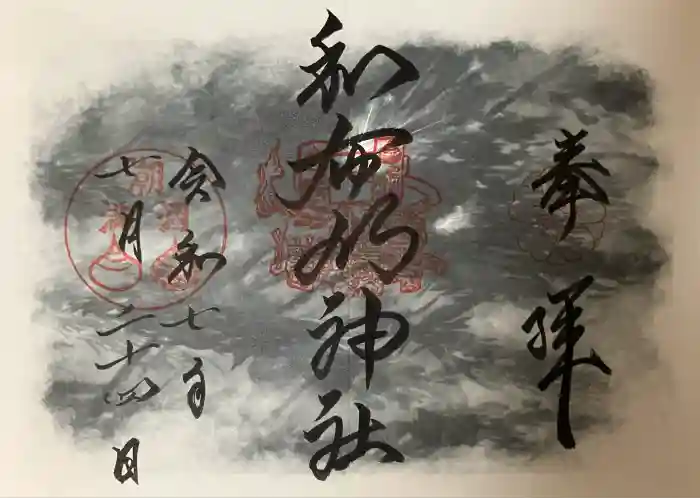 奉拝
和布刈神社
令和七年
七月二十四日